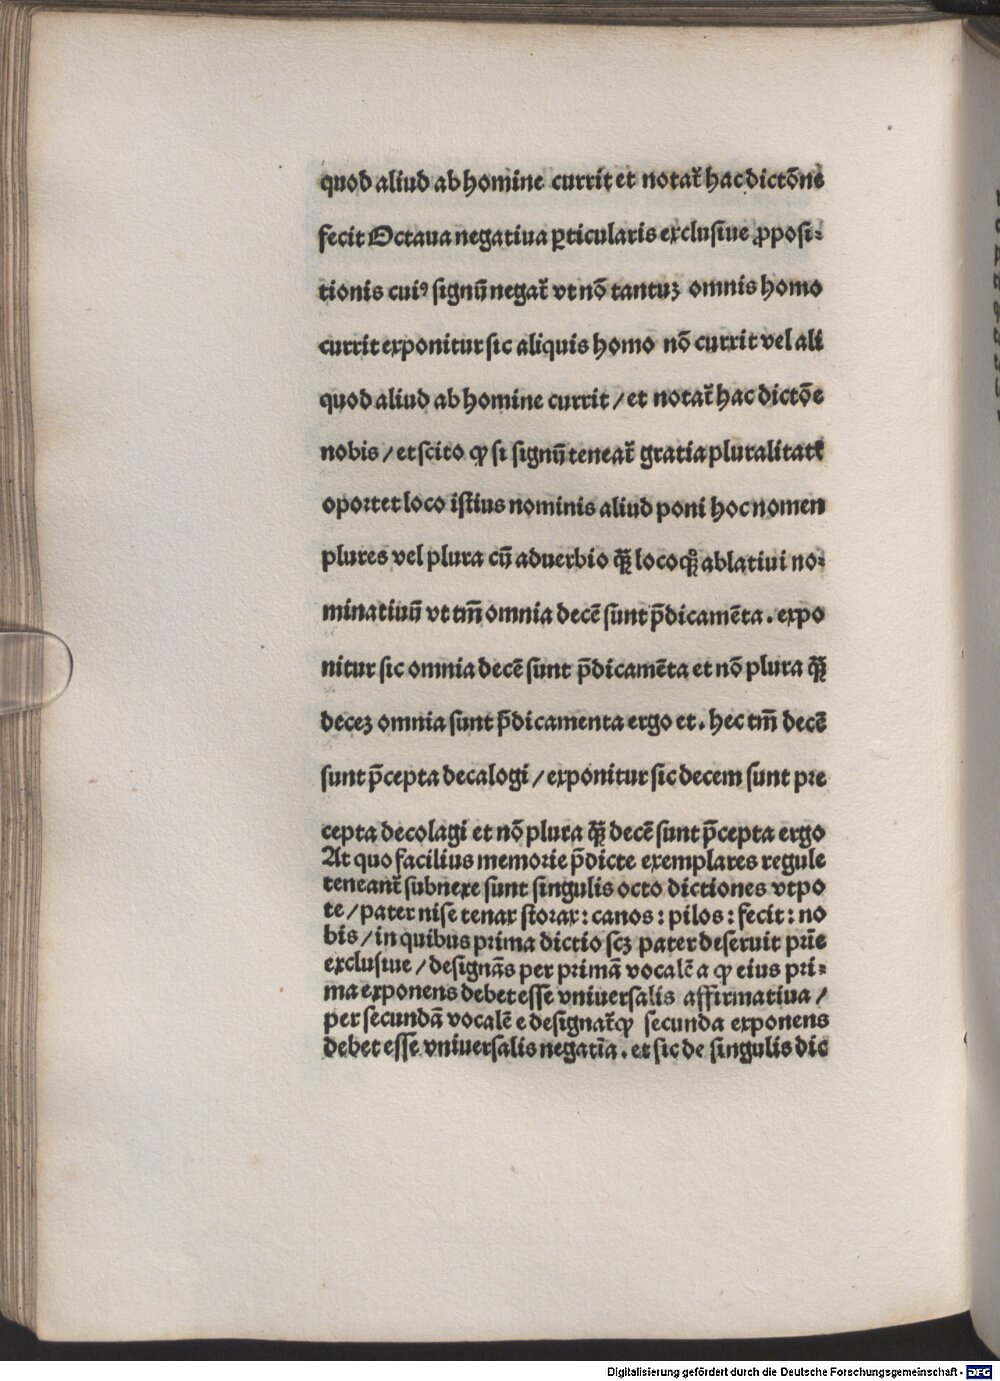 quod aliud ab homine currit et notat᷑ hac dictōne
fecit Octaua negatiua ꝑticularis exclusiue ꝓposi⸗
tionis cuiꝰ signū negat᷑ vt nō tantuꝫ omnis homo
currit exponitur sic aliquis homo nō currit vel ali
quod aliud ab homine currit / et notat᷑ hac dictōe
nobis / et scito ꝙ si signū teneat᷑ gratia pluralitatꝭ
oportet loco istius nominis aliud poni hoc nomen
plures vel plura cū aduerbio q̄ꝫ locoqꝫ ablatiui no⸗
minatiuū vt tm̄ omnia decē sunt p̄dicamēta. expo
nitur sic omnia decē sunt p̄dicamēta et nō plura q̄ꝫ
deceꝫ omnia sunt p̄dicamenta ergo et. hec tm̄ decē
sunt p̄cepta decalogi / exponitur sic decem sunt pre
cepta decolagi et nō plura q̄ꝫ decē sunt p̄cepta ergo
At quo facilius memorie p̄dicte exemplares regule
teneant᷑ subnexe sunt singulis octo dictiones vtpo
te / pater nise tenax storax : canos : pilos : fecit : no
bis / in quibus prima dictio scꝫ pater deseruit prīe
exclusiue / designās per primā vocalē a ꝙ eius pri⸗
ma exponens debet esse vniuersalis affirmatiua /
per secundā vocalē e designat᷑ ꝙ secunda exponens
debet esse vniuersalis negatīa. et sic de singulis dic
Digitalisierung gefördert durch die Deutsche Forschungsgemeinschaft - DFG